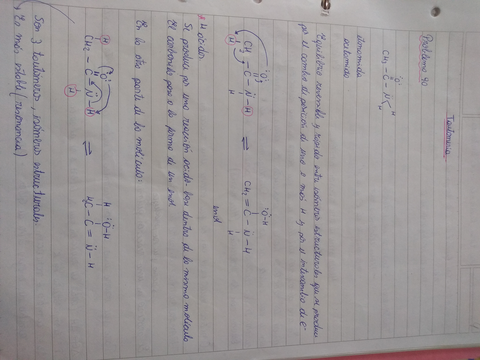 Tautomería
Problema 90
:O:
CH3 - C - N H H
etanamida
acetamida
Equilibrio reversible y rápido entre isómeros estructurales que se produce
por el cambio de posición de uno o más H y por el intercambio de e-
:O: H
CH2 - C - N - H ⇌ CH2 = C - N - H
H H H
:O-H
enol
H ácidos
Se produce por una reacción ácido-base dentro de la misma molécula
El carbonilo pasa a la forma de un enol
En la otra parte de la molécula:
H :O: H :O-H
CH2 - C - N - H ⇌ H2C - C = N - H
H
Son 3 tautómeros, isómeros estructurales
Lo más estable (resonancia)